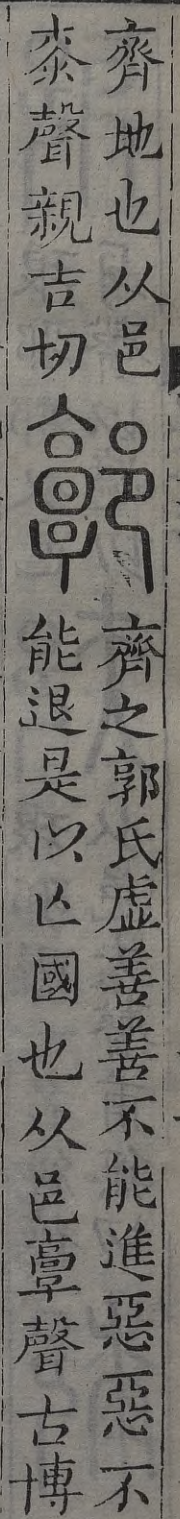 齊地也从邑
桼聲親吉切
𨟍
齊之郭氏虛善善不能進惡惡不
能退是以亾國也从邑𩫏聲古博